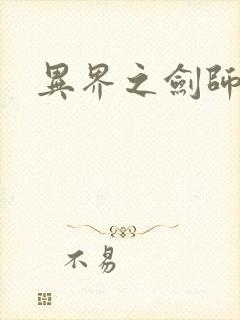 異界之劍師
不易